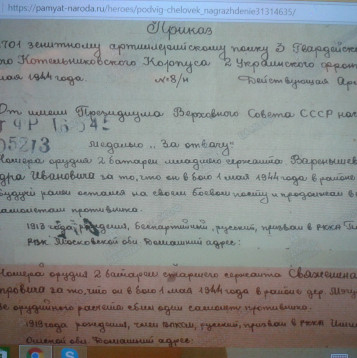 https://pamyat-naroda.ru/heroes/podvig-chelovek_nagrazhdenie31314635/
Приказ
1701 зенитному артиллерийскому полку 3 Гвардейско
го Котельниковского Корпуса 2 Украинского фронта
мая 1944 года. № 8/н Действующая Ар
От имени Президиума Верховного Совета СССР наг
медалью „За отвагу"
Номера орудия 2 батареи младшего сержанта
Ивановича за то, что он в бою 1 мая 1944 года в районе
будучи ранен остался на своем боевом посту и продолжал в
самолетам противника.
1913 года рождения, беспартийный, русский, призван в РККА
РВК Московской обл. Домашний адрес:
Номера орудия 2 батареи сержанта
за то, что он в бою 1 мая 1944 года в районе дер.
орудийного расчета сбил один самолет противника.
1919 года рождения, член ВЛКСМ, русский, призван в РККА
Омской обл. Домашний адрес: